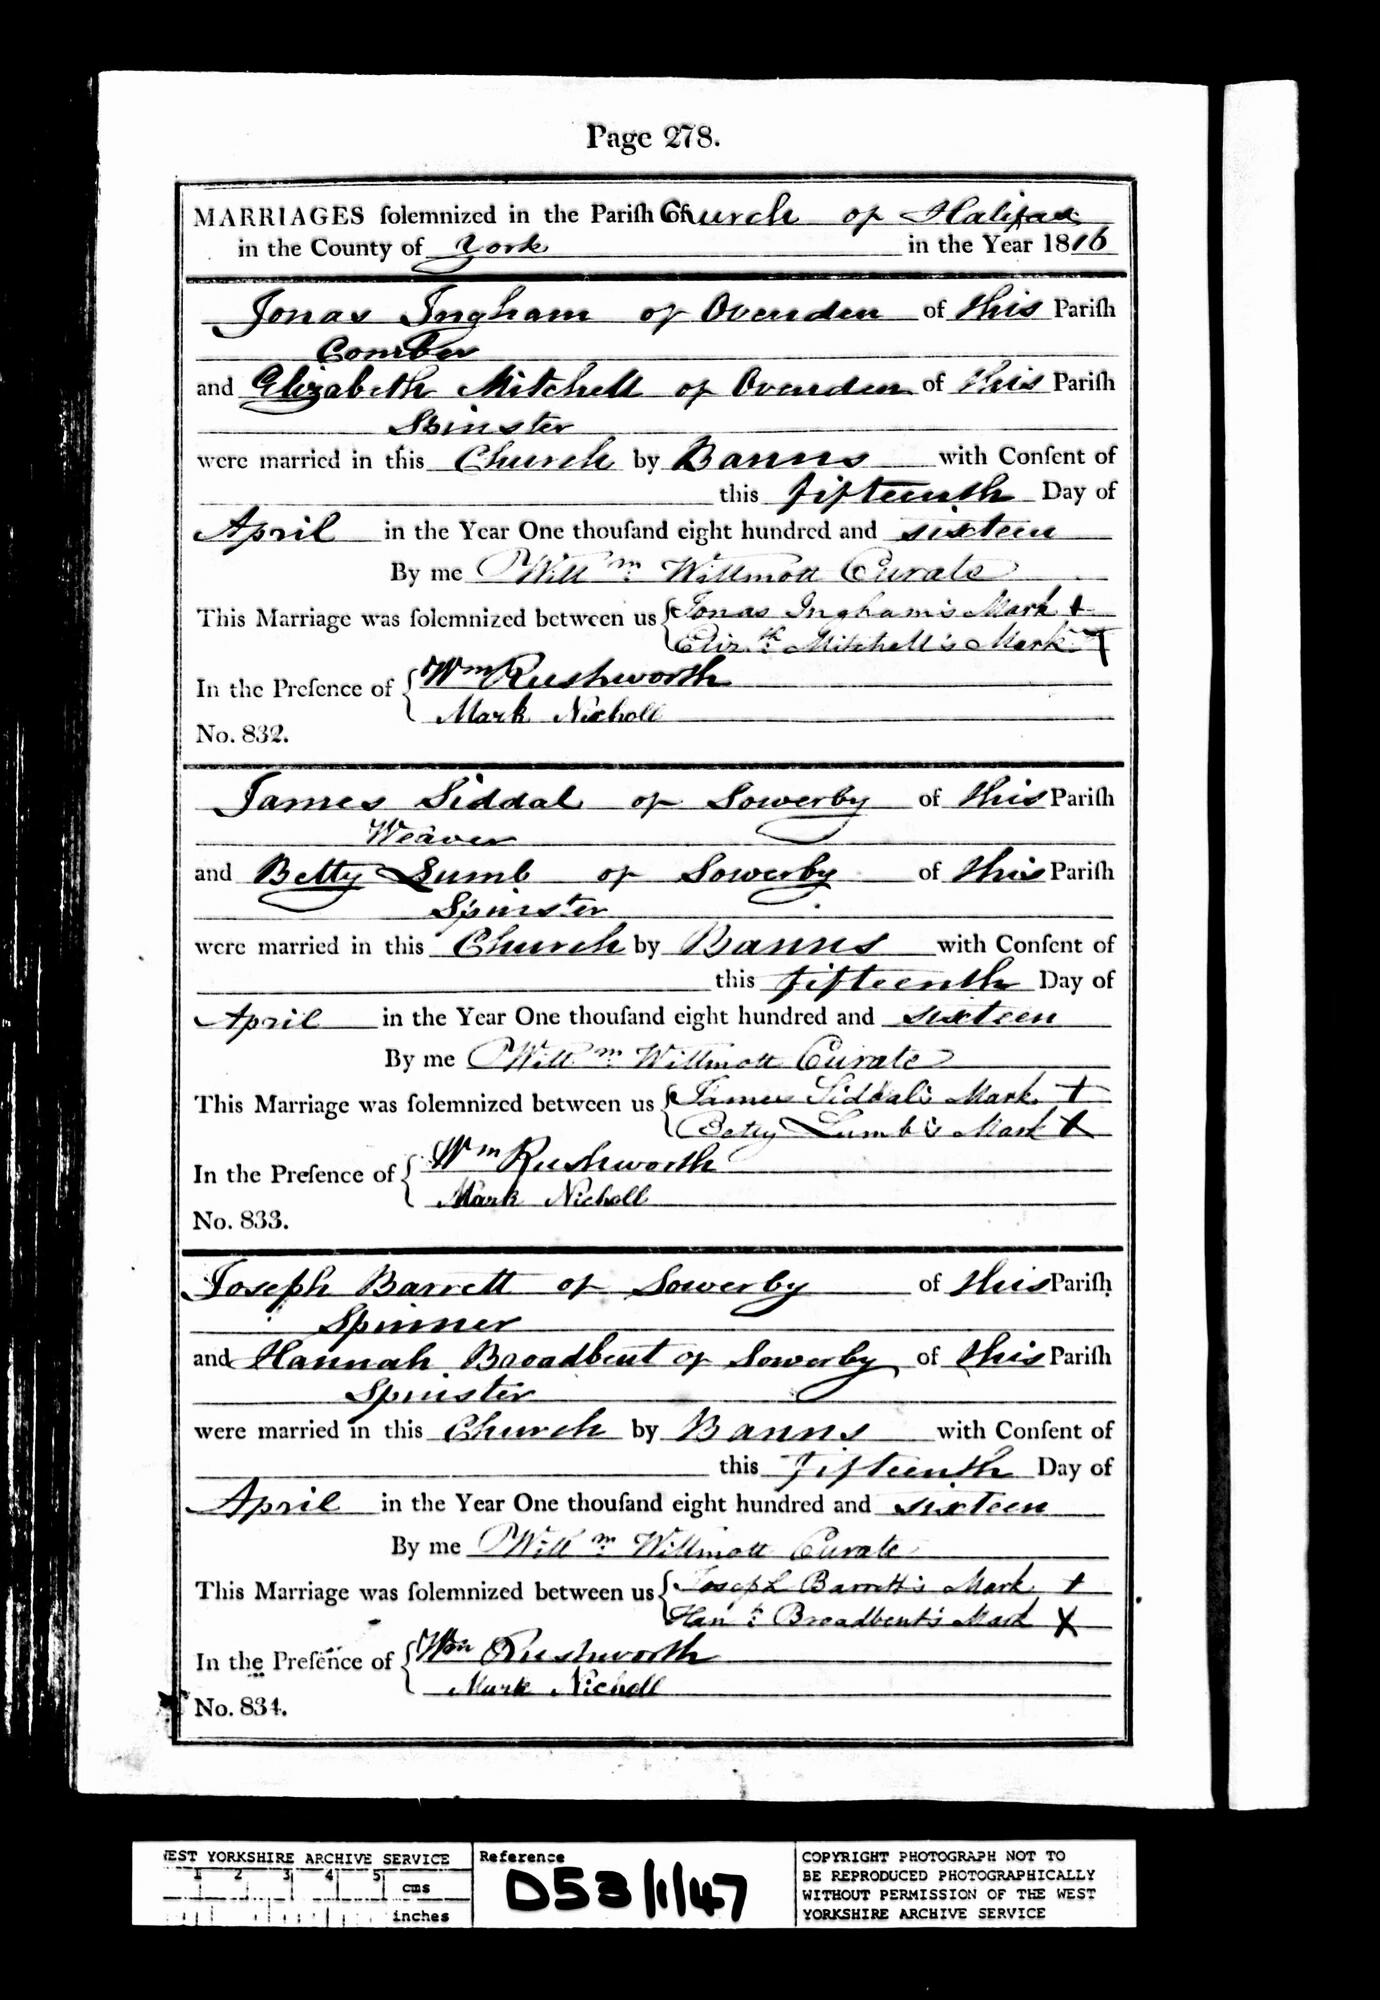 Page 278.
MARRIAGES ſolemnized in the Pariſh Church of Halifax
in the County of York in the Year 1816
Jonas Ingham of Ovenden of this Pariſh
Comber
and Elizabeth Mitchell of Ovenden of this Pariſh
Spinster
were married in this Church by Banns with Conſent of
this fifteenth Day of
April in the Year One thouſand eight hundred and sixteen
By me Willm Willmott Curate
This Marriage was ſolemnized between us { Jonas Ingham's Mark +
Elizth Mitchell's Mark +
In the Preſence of { Wm Rushworth
Mark Nicholl
No. 832.
James Siddal of Sowerby of this Pariſh
Weaver
and Betty Lumb of Sowerby of this Pariſh
Spinster
were married in this Church by Banns with Conſent of
this fifteenth Day of
April in the Year One thouſand eight hundred and sixteen
By me Willm Willmott Curate
This Marriage was ſolemnized between us { James Siddal's Mark +
Betty Lumb's Mark +
In the Preſence of { Wm Rushworth
Mark Nicholl
No. 833.
Joseph Barrett of Sowerby of this Pariſh
Spinner
and Hannah Broadbent of Sowerby of this Pariſh
Spinster
were married in this Church by Banns with Conſent of
this fifteenth Day of
April in the Year One thouſand eight hundred and sixteen
By me Willm Willmott Curate
This Marriage was ſolemnized between us { Joseph Barrett's Mark +
Hanh Broadbent's Mark X
In the Preſence of { Wm Rushworth
Mark Nicholl
No. 834.
WEST YORKSHIRE ARCHIVE SERVICE
1 2 3 4 5
cms
inches
Reference
D53/1/47
COPYRIGHT PHOTOGRAPH NOT TO
BE REPRODUCED PHOTOGRAPHICALLY
WITHOUT PERMISSION OF THE WEST
YORKSHIRE ARCHIVE SERVICE